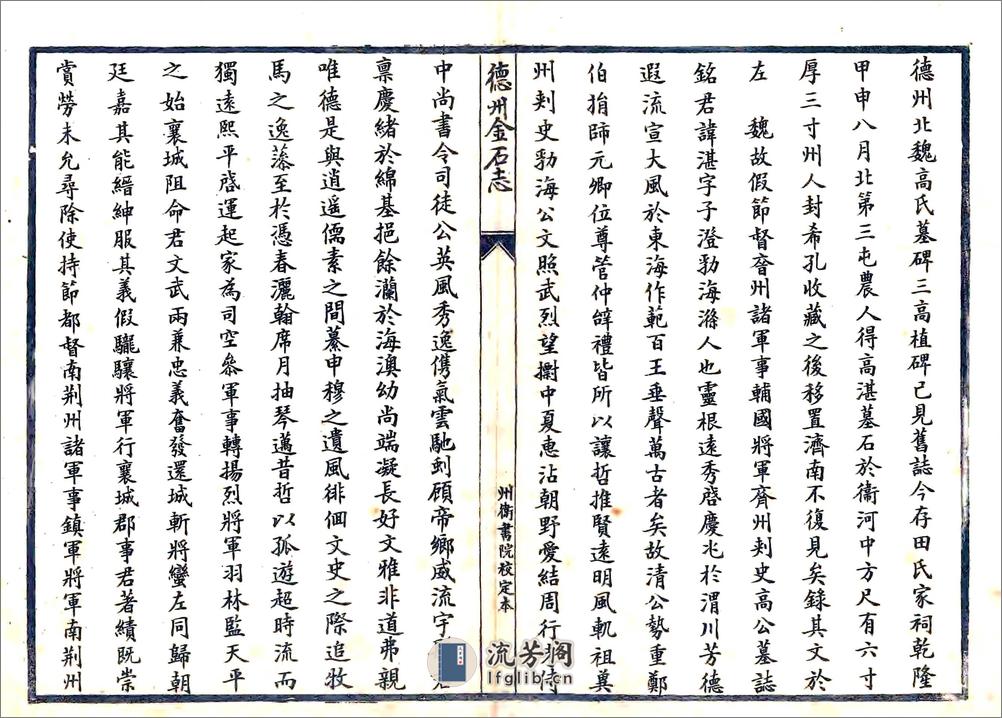 德州北魏高氏墓碑三高植碑已見舊誌今存田氏家祠乾隆
甲申八月北第三屯農人得高湛墓石於衞河中方尺有六寸
厚三寸州人封希孔收藏之後移置濟南不復見矣錄其文於
左　魏故假節督齊州諸軍事輔國將軍齊州刾史高公墓誌
銘君諱湛字子澄勃海滌人也靈根遠秀啓慶兆於渭川芳德
遐流宣大風於東海作範百王垂聲萬古者矣故清公勢重鄭
伯捐師元卿位尊管仲辭禮皆所以讓哲推賢遠明風軌祖冀
州刾史勃海公文照武烈望𢷤中夏惠沾朝野愛結周行 侍
德州金石志
州衛書院校定本
中尚書令司徒公英風秀逸儁氣雲馳剋頋帝鄉威流宇
禀慶緒於綿基挹餘瀾於海澳幼尚端凝長好文雅非道弗親
唯德是與逍遥儒素之間纂申穆之遺風徘徊文史之際追牧
馬之逸藻至於憑春灑翰席月抽琴邁昔哲以孤遊超時流而
獨遠熙平啓運起家為司空叅軍事轉揚烈將軍羽林監天平
之始襄城阻命君文武兩兼忠義奮發還城斬將蠻左同歸朝
廷嘉其能縉紳服其義假驪驤將軍行襄城郡事君著績既崇
賞勞未允尋除使持節都督南荆州諸軍事鎮軍將軍南荆州
流芳阁
lfglib.cn